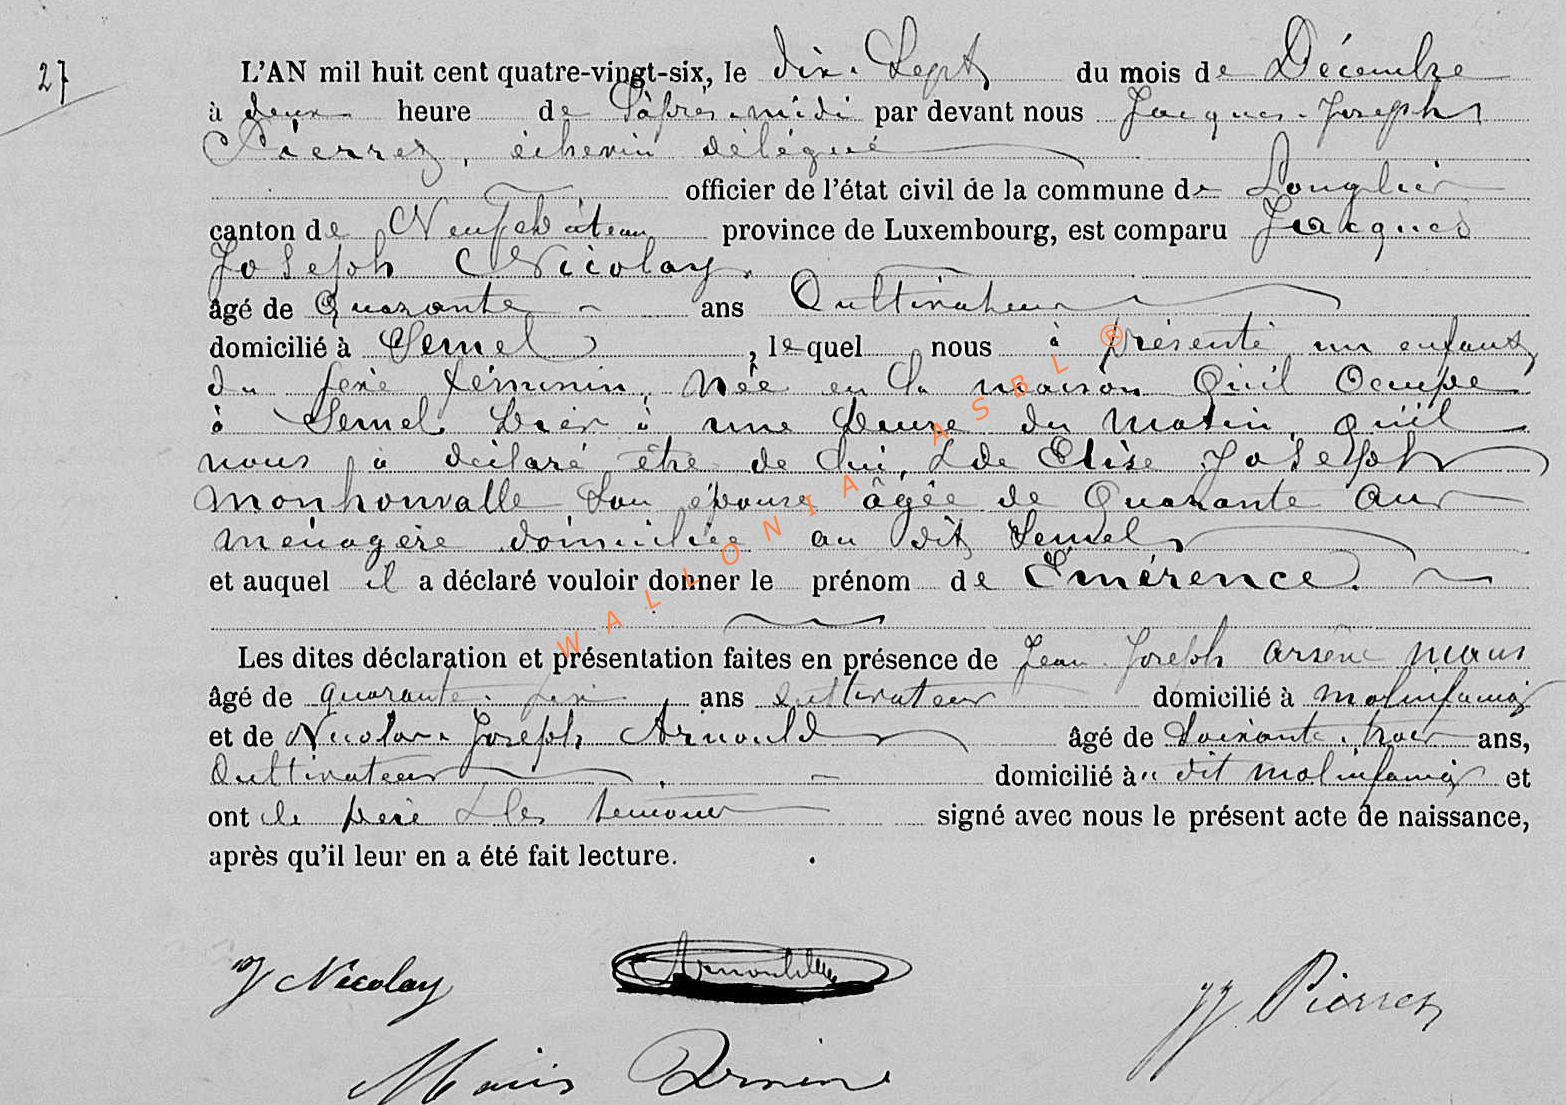 27
L'AN mil huit cent quatre-vingt-six, le dix-Sept du mois de Décembre
à deux heure de l'après-midi par devant nous Jacques-Joseph
Pierrez, échevin délégué
officier de l'état civil de la commune de Longlier
canton de Neufchâteau province de Luxembourg, est comparu Jacques
Joseph Nicolay
âgé de Quarante ans Cultivateur
domicilié à Semel, lequel nous à présenté un enfant
du sexe féminin, née en la maison Qu'il Occupe
à Semel hier à une heure du Matin, qu'il
nous à déclaré être de lui, & de Elise Joseph
Monhonvalle son épouse âgée de Quarante ans
ménagère domiciliée au dit Semel
et auquel il a déclaré vouloir donner le prénom de Emérence.
Les dites déclaration et présentation faites en présence de Jean-Joseph Arsène Maus
âgé de quarante-six ans cultivateur domicilié à Molinfaing
et de Nicolas-Joseph Arnould âgé de Soixante-trois ans,
Cultivateur domicilié à dit Molinfaing et
ont le père & les témoins signé avec nous le présent acte de naissance,
après qu'il leur en a été fait lecture.
J Nicolay Arnould JJ Pierrez
WALLONIA ASBL ®